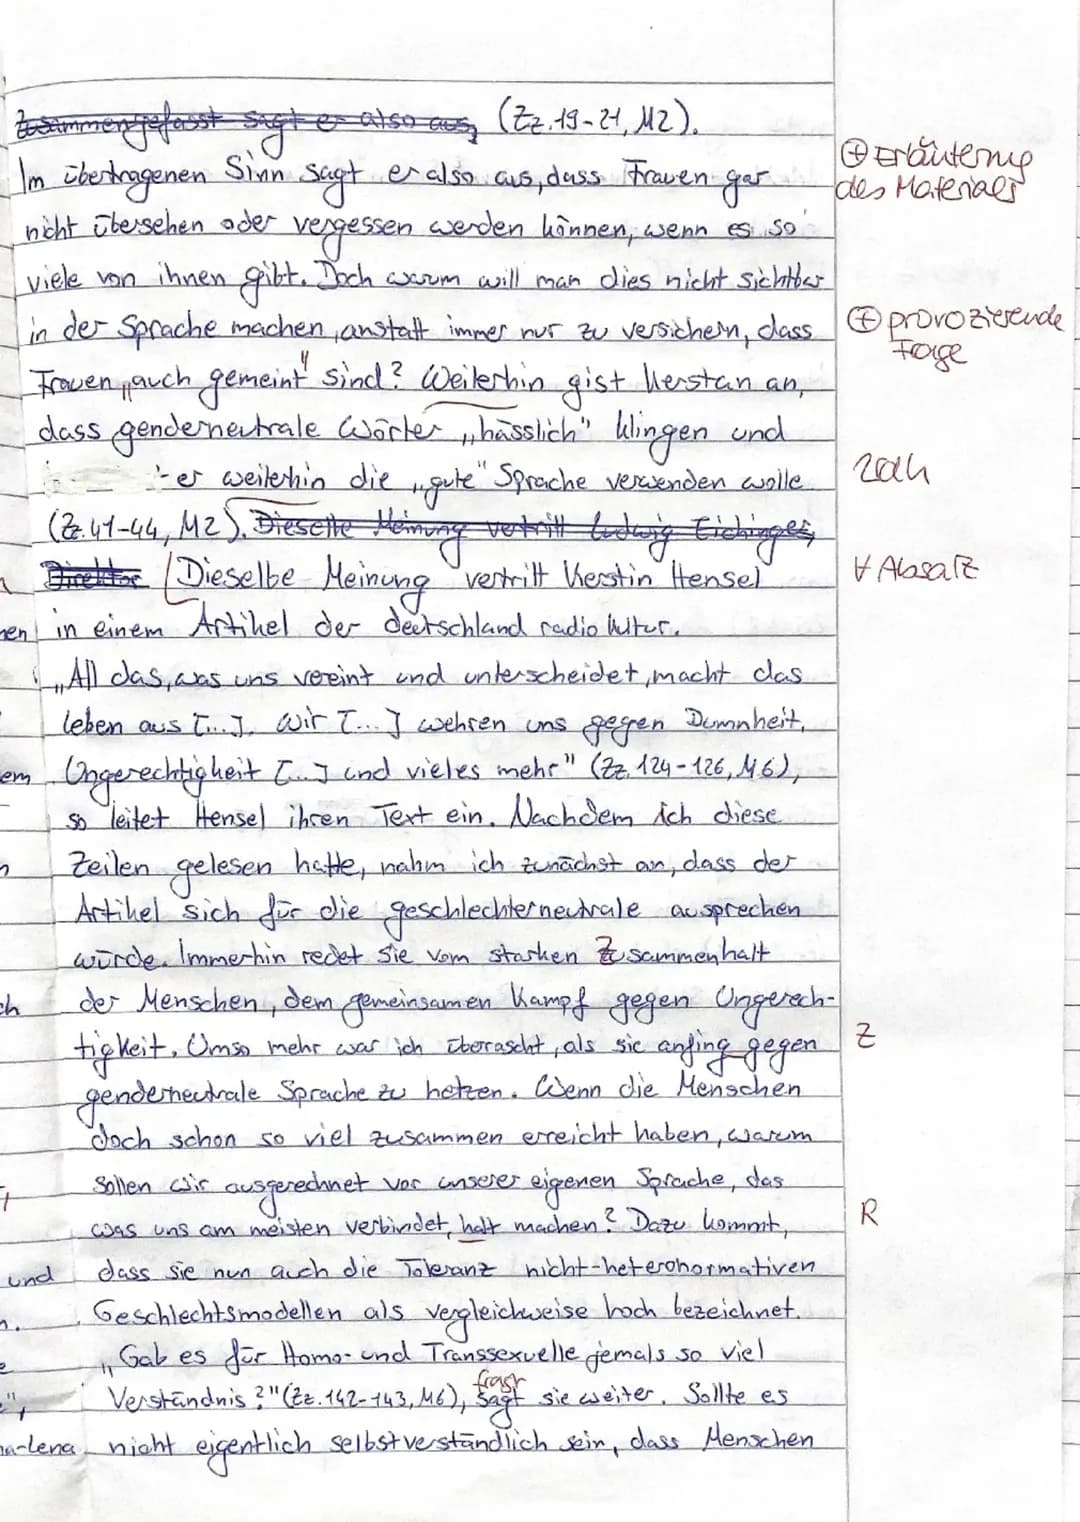 Zusammengefasst sagt er also aus, (Zz. 19-21, M2).
⊕ Erläuterung
des Materials
Im übertragenen Sinn sagt er also aus, dass Frauen gar
nicht übersehen oder vergessen werden können, wenn es so
viele von ihnen gibt. Doch warum will man dies nicht sichtbar
in der Sprache machen, anstatt immer nur zu versichern, dass
⊕ provozierende
Frage
Frauen „auch gemeint" sind? Weiterhin gist Kerstan an,
dass genderneutrale Wörter „hässlich" klingen und
er weiterhin die „gute" Sprache verwenden wolle
(Zz. 41-44, M2). Dieselbe Meinung vertritt Ludwig Eichinger,
Direktor Dieselbe Meinung vertritt Kerstin Hensel
Absatz
nen
in einem Artikel der deutschland radio kultur.
„All das, was uns vereint und unterscheidet, macht das
Leben aus [...]. Wir [...] wehren uns gegen Dummheit,
em
Ungerechtigkeit [...] und vieles mehr" (Zz. 124-126, M6),
so leitet Hensel ihren Text ein. Nachdem ich diese
Zeilen gelesen hatte, nahm ich zunächst an, dass der
Artikel sich für die geschlechterneutrale ausprechen
würde. Immerhin redet sie vom starken Zusammenhalt
ch
der Menschen, dem gemeinsamen Kampf gegen Ungerech-
tigkeit. Umso mehr war ich überascht, als sie anfing gegen
Z
genderneutrale Sprache zu hetzen. Wenn die Menschen
doch schon so viel zusammen erreicht haben, warum
sollen wir ausgerechnet vor unserer eigenen Sprache, das
was uns am meisten verbindet, halt machen? Dazu kommt,
R
und
dass sie nun auch die Toleranz nicht-heteronormativen
Geschlechtsmodellen als vergleichweise hoch bezeichnet.
„Gab es für Homo- und Transsexuelle jemals so viel
fragt
Verständnis?" (Zz. 142-143, M6), sagt sie weiter. Sollte es
na-Lena
nicht eigentlich selbstverständlich sein, dass Menschen